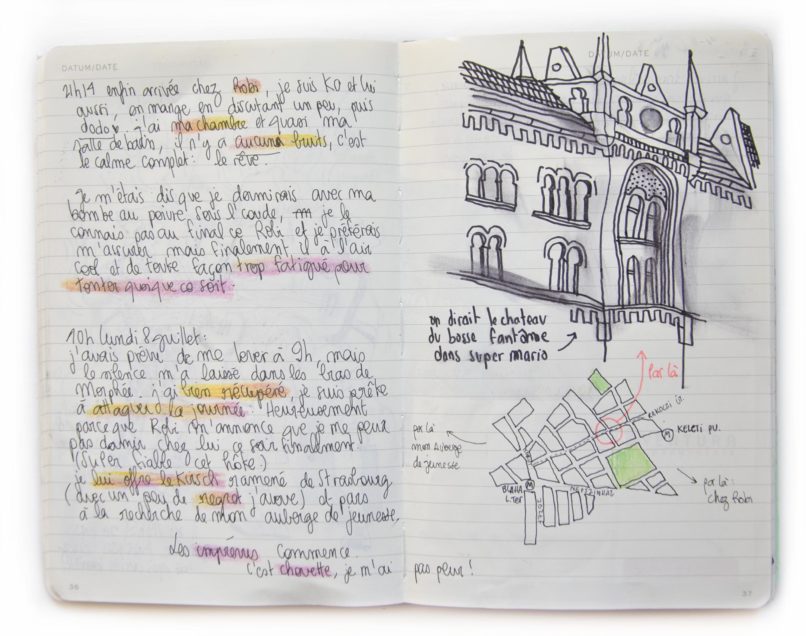 DATUM/DATE
21h14 enfin arrivée chez Robi, je suis KO et lui
aussi, on mange en discutant un peu, puis
dodo. j'ai ma chambre et quasi ma
salle de bain, il n'y a aucuns bruits, c'est
le calme complet : le rêve
Je m'étais dis que je dormirais avec ma
bombe au poivre sous l'coude, je le
connais pas au final ce Robi et je préférais
m'assurer mais finalement il à l'air
cool et de toute façon trop fatigué pour
tenter quoique ce soit.
10h lundi 8 juillet :
j'avais prévu de me lever à 9h, mais
le silence m'a laissé dans les bras de
Morphée. j'ai bien récupéré, je suis prête
à attaquer la journée. Heureusement
parce que Robi m'annonce que je ne peux
pas dormir chez lui ce soir finallement.
(Super fiable cet hôte.)
je lui offre le Kirsch ramené de Strasbourg
(avec un peu de regret j'avoue) et pars
à la recherche de mon auberge de jeunesse.
Les imprévus commence
c'est chouette, je m'ai pas peur !
36
DATUM/DATE
on dirait le chateau
du bosse fantôme
dans super mario
par là
RAKOCZI ÚT.
M KELETI PU.
par là
mon auberge
de jeunesse
BLAHA
L. TER
M
par là :
chez Robi
37